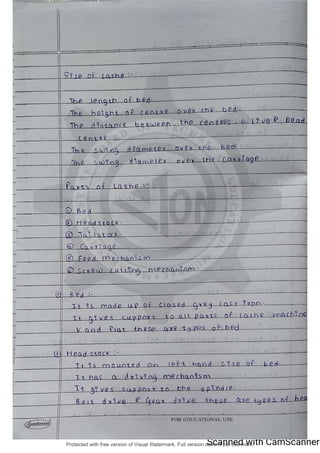 Size of Lathe :-
The length of bed
The height of centre over the bed
The distance between the centres i.e. Live & Dead
Centre
The swing diameter over the bed
The swing diameter over the carriage
Parts of Lathe :-
① Bed
② Headstock
③ Tailstock
④ Carriage
⑤ Feed Mechanism
⑥ Screw cutting mechanism
Bed :-
It is made up of closed grey cast iron
It gives support to all parts of lathe machine
V and flat these are types of bed
Head stock :-
It is mounted on left hand size of bed
It has a driving mechanism
It gives support to the spindle
Belt drive & Gear drive these are types of hea
Sundaram
FOR EDUCATIONAL USE
Protected with free version of Visual Watermark. Full version
Scanned with CamScanner